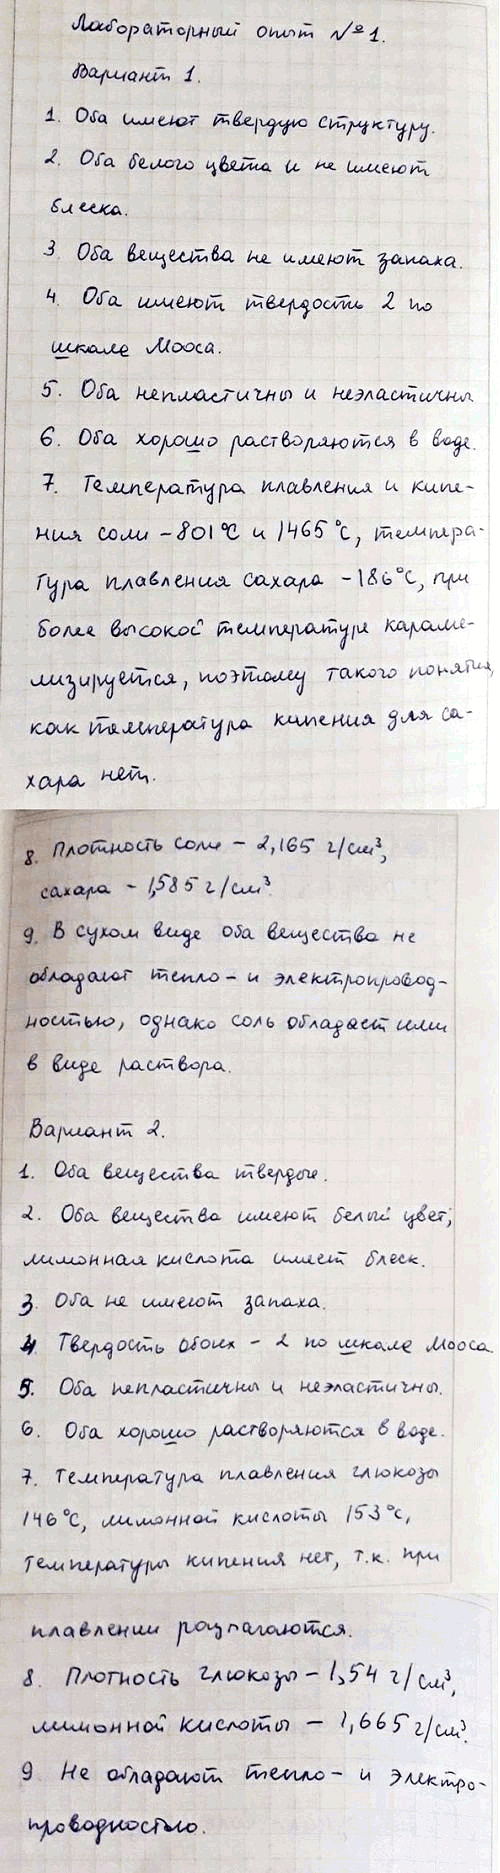 Лабораторный опыт №1.
Вариант 1.
1. Оба имеют твердую структуру.
2. Оба белого цвета и не имеют
блеска.
3 Оба вещества не имеют запаха.
4. Оба имеют твердость 2 по
шкале Мооса.
5. Оба непластичны и неэластичны
6. Оба хорошо растворяются в воде.
7. Температура плавления и кипе-
ния соли - 801°С и 1465°С, темпера-
тура плавления сахара - 186°С, при
более высокой температуре караме-
лизируется, поэтому такого понятия,
как температура кипения для са-
хара нет.
8. Плотность соли - 2,165 г/см³,
сахара - 1,585 г/см³
9. В сухом виде оба вещества не
обладают тепло- и электропровод-
ностью, однако соль обладает ими
в виде раствора.
Вариант 2.
1. Оба вещества твердые.
2. Оба вещества имеют белый цвет,
лимонная кислота имеет блеск.
3. Оба не имеют запаха.
4 Твердость обоих - 2 по шкале Мооса
5. Оба непластичны и неэластичны.
6. Оба хорошо растворяются в воде.
7. Температура плавления глюкозы
146°С, лимонной кислоты 153°С,
температуры кипения нет, т.к. при
плавлении разлагаются.
8. Плотность глюкозы - 1,54 г/см³,
лимонной кислоты - 1,665 г/см³.
9 Не обладают тепло- и электро-
проводностью.